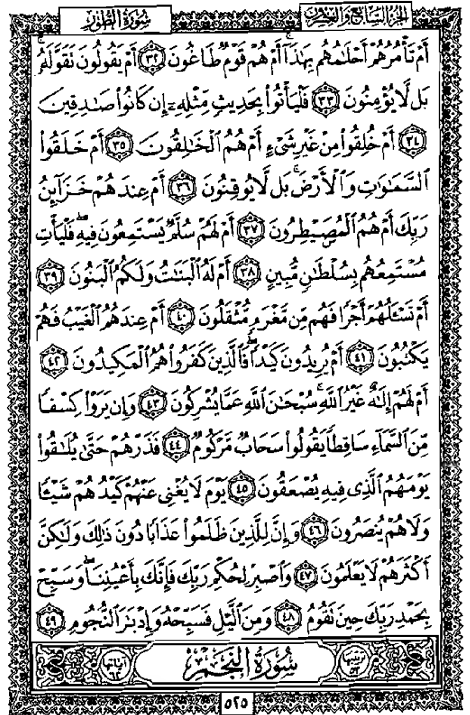 سُورَةُ الطُّورِ
الجُزْءُ السَّابِعُ وَالعِشْرُونَ
أَمْ تَأْمُرُهُمْ أَحْلَٰمُهُم بِهَٰذَآ أَمْ هُمْ قَوْمٌ طَاغُونَ ٣٢ أَمْ يَقُولُونَ تَقَوَّلَهُۥ
بَل لَّا يُؤْمِنُونَ ٣٣ فَلْيَأْتُوا۟ بِحَدِيثٍ مِّثْلِهِۦٓ إِن كَانُوا۟ صَٰدِقِينَ
٣٤ أَمْ خُلِقُوا۟ مِنْ غَيْرِ شَىْءٍ أَمْ هُمُ ٱلْخَٰلِقُونَ ٣٥ أَمْ خَلَقُوا۟
ٱلسَّمَٰوَٰتِ وَٱلْأَرْضَ ۚ بَل لَّا يُوقِنُونَ ٣٦ أَمْ عِندَهُمْ خَزَآئِنُ
رَبِّكَ أَمْ هُمُ ٱلْمُصَۣيْطِرُونَ ٣٧ أَمْ لَهُمْ سُلَّمٌ يَسْتَمِعُونَ فِيهِ ۖ فَلْيَأْتِ
مُسْتَمِعُهُم بِسُلْطَٰنٍ مُّبِينٍ ٣٨ أَمْ لَهُ ٱلْبَنَٰتُ وَلَكُمُ ٱلْبَنُونَ ٣٩
أَمْ تَسْـَٔلُهُمْ أَجْرًا فَهُم مِّن مَّغْرَمٍ مُّثْقَلُونَ ٤٠ أَمْ عِندَهُمُ ٱلْغَيْبُ فَهُمْ
يَكْتُبُونَ ٤١ أَمْ يُرِيدُونَ كَيْدًا ۖ فَٱلَّذِينَ كَفَرُوا۟ هُمُ ٱلْمَكِيدُونَ ٤٢
أَمْ لَهُمْ إِلَٰهٌ غَيْرُ ٱللَّهِ ۚ سُبْحَٰنَ ٱللَّهِ عَمَّا يُشْرِكُونَ ٤٣ وَإِن يَرَوْا۟ كِسْفًا
مِّنَ ٱلسَّمَآءِ سَاقِطًا يَقُولُوا۟ سَحَابٌ مَّرْكُومٌ ٤٤ فَذَرْهُمْ حَتَّىٰ يُلَٰقُوا۟
يَوْمَهُمُ ٱلَّذِى فِيهِ يُصْعَقُونَ ٤٥ يَوْمَ لَا يُغْنِى عَنْهُمْ كَيْدُهُمْ شَيْـًٔا
وَلَا هُمْ يُنصَرُونَ ٤٦ وَإِنَّ لِلَّذِينَ ظَلَمُوا۟ عَذَابًا دُونَ ذَٰلِكَ وَلَٰكِنَّ
أَكْثَرَهُمْ لَا يَعْلَمُونَ ٤٧ وَٱصْبِرْ لِحُكْمِ رَبِّكَ فَإِنَّكَ بِأَعْيُنِنَا ۖ وَسَبِّحْ
بِحَمْدِ رَبِّكَ حِينَ تَقُومُ ٤٨ وَمِنَ ٱلَّيْلِ فَسَبِّحْهُ وَإِدْبَٰرَ ٱلنُّجُومِ ٤٩
سُورَةُ النَّجْمِ
٥٢٥